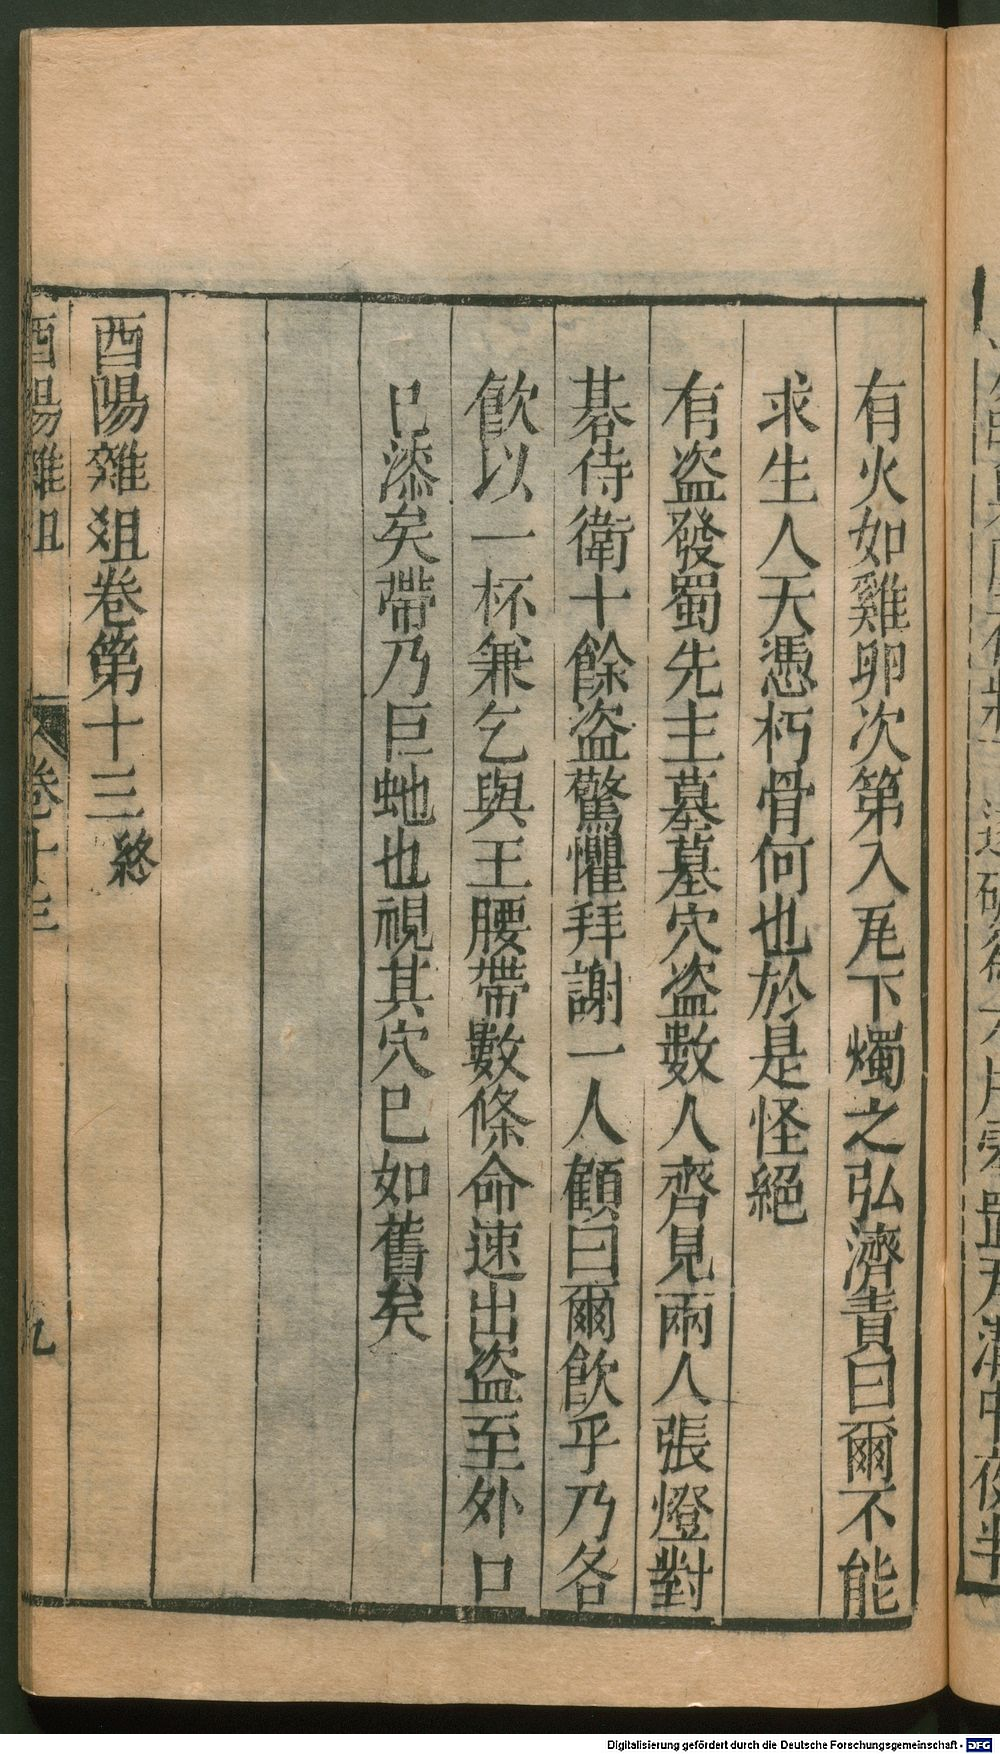 有火如雞卵次第入瓦下燭之弘濟責曰爾不能
求生人天憑朽骨何也於是怪絕
有盜發蜀先主墓墓穴盜數人齊見兩人張燈對
碁侍衛十餘盜驚懼拜謝一人顧曰爾飲乎乃各
飲以一杯兼乞與玉腰帶數條命速出盜至外口
已漆矣帶乃巨虵也視其穴已如舊矣
酉陽雜俎卷第十三 終
酉陽雜俎 卷十三 九
Digitalisierung gefördert durch die Deutsche Forschungsgemeinschaft - DFG